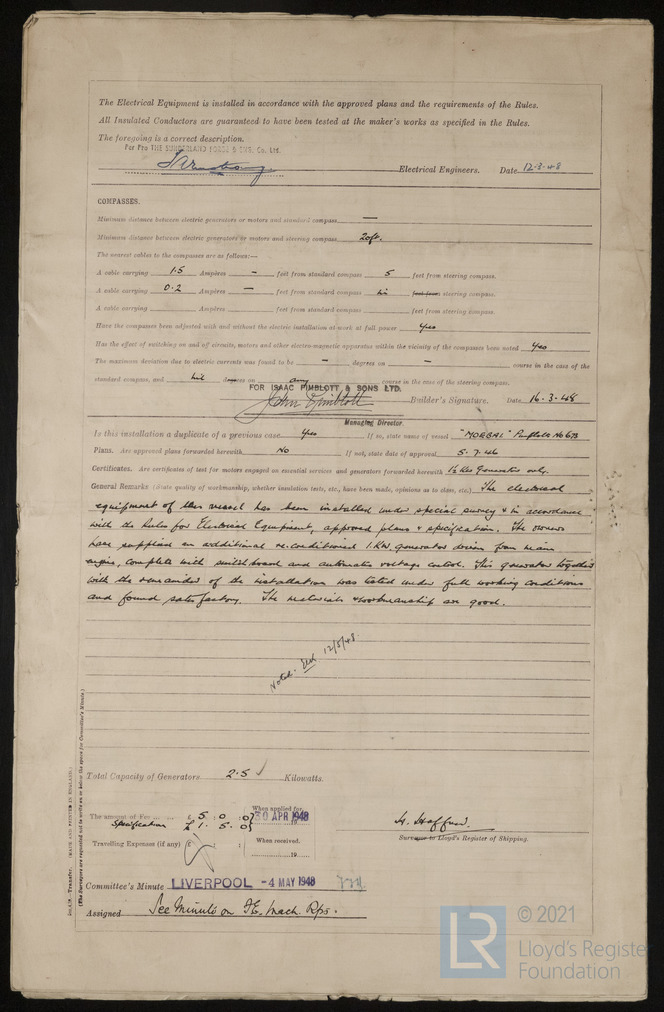 The Electrical Equipment is installed in accordance with the approved plans and the requirements of the Rules.
All Insulated Conductors are guaranteed to have been tested at the maker's works as specified in the Rules.
The foregoing is a correct description.
For Pro THE SUNDERLAND FORGE & ENG. Co. Ltd.
Electrical Engineers. Date 12-3-48
COMPASSES.
Minimum distance between electric generators or motors and standard compass —
Minimum distance between electric generators or motors and steering compass 20ft.
The nearest cables to the compasses are as follows:—
A cable carrying 1.5 Ampères - feet from standard compass 5 feet from steering compass.
A cable carrying 0.2 Ampères — feet from standard compass in feet from steering compass.
A cable carrying Ampères feet from standard compass feet from steering compass.
Have the compasses been adjusted with and without the electric installation at work at full power yes
Has the effect of switching on and off circuits, motors and other electro-magnetic apparatus within the vicinity of the compasses been noted yes
The maximum deviation due to electric currents was found to be - degrees on - course in the case of the
standard compass, and nil degrees on any course in the case of the steering compass.
FOR ISAAC PIMBLOTT & SONS LTD.
John Pimblott Builder's Signature. Date 16-3-48
Managing Director
Is this installation a duplicate of a previous case yes If so, state name of vessel "MORBAI" Pimblotts No 673
Plans. Are approved plans forwarded herewith No If not, state date of approval 5.7.46
Certificates. Are certificates of test for motors engaged on essential services and generators forwarded herewith 1½ Kw Generator only.
General Remarks (State quality of workmanship, whether insulation tests, etc., have been made, opinions as to class, etc.) The electrical
equipment of this vessel has been installed under special survey & in accordance
with the Rules for Electrical Equipment, approved plans & specification. The owners
have supplied an additional re-conditioned 1. KW generator driven from main
engine, complete with switchboard and automatic voltage control. This generator together
with the remainder of the installation was tested under full working conditions
and found satisfactory. The materials & workmanship are good.
Noted. 12/5/48
Total Capacity of Generators 2.5 Kilowatts.
The amount of Fee ... £ 5 : 0 : 0 When applied for, 30 APR 1948
Specification £ 1. 5. 0
Travelling Expenses (if any) £ : : When received, 19
Surveyor to Lloyd's Register of Shipping.
Committee's Minute LIVERPOOL -4 MAY 1948
Assigned See Minute on F.E. Mach. Rpt.
(MADE AND PRINTED IN ENGLAND.)
(The Surveyors are requested not to write on or below the space for Committee's Minute.)
LR
© 2021
Lloyd's Register
Foundation